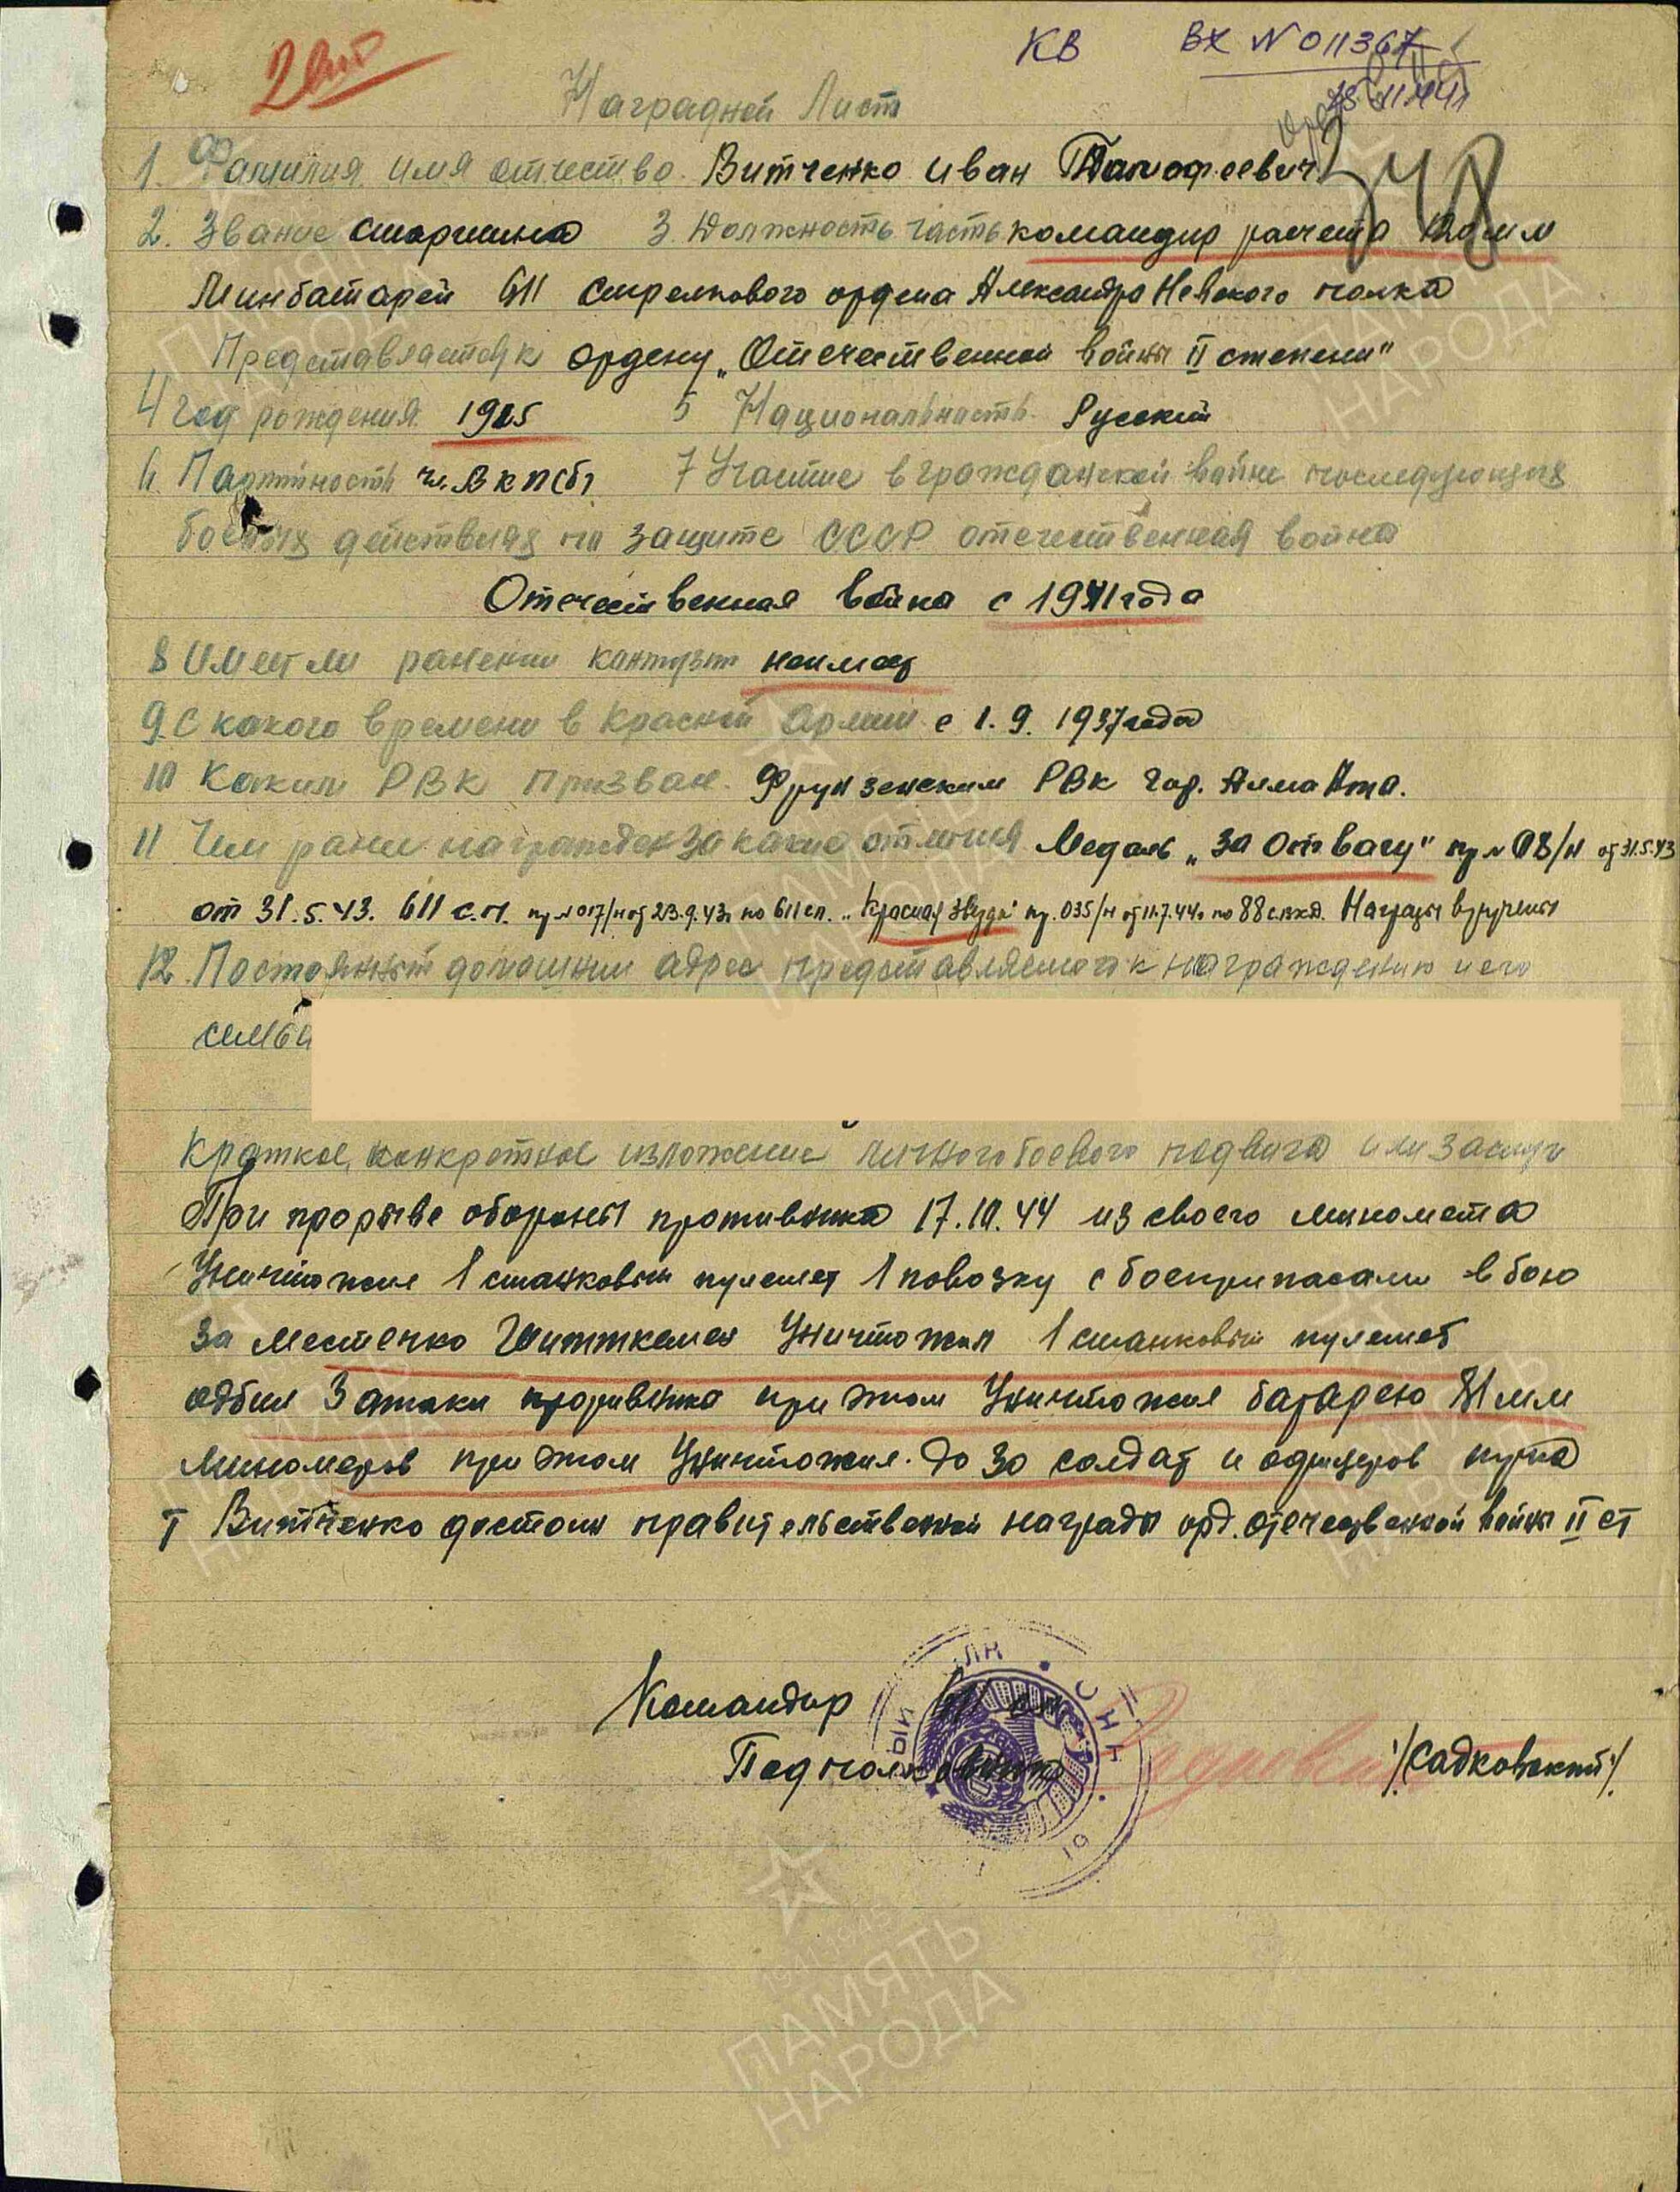 2 спр
КВ Вх № 011367
Наградной Лист
348
1. Фамилия имя отчество Витченко Иван
2. Звание старшина 3. Должность часть командир расчета 120 мм
Минбатареи 611 стрелкового ордена Александра Невского полка
Представляется к ордену „Отечественной войны II степени"
4 Год рождения 5 Национальность Русский
6. Партийность чл. ВКП(б) 7 Участие в гражданской войне последующих
боевых действиях по защите СССР отечественная война
Отечественная война с 1941 года
8 Имеет ли ранении контузии неимеет
9. С какого времени в Красной Армии с 1. 9. 1937 года
10 Каким РВК призван. Фрунзенским РВК гор. Алма Ата.
11 Чем ране награжден за какие отличия Медаль „За Отвагу" пр № 08/н от 31.5.43
от 31.5.43. 611 с.п. пр № 017/н от 23.9.43г по 611 сп. „Красная Звезда" пр. 035/н от 11.7.44г по 88 с.вкд. Награды вручены
12. Постоянный домашнии адрес представляемого к награждению и его
семьи
Краткое, конкретное изложение личного боевого подвига или заслуг
При прорыве обороны противника 17.10.44 из своего миномета
Уничтожил 1 станковый пулемет 1 повозку с боеприпасами в бою
за местечко Уничтожил 1 станковый пулемет
отбил 3 атаки противника при этом Уничтожил батарею 81 мм
минометов при этом Уничтожил. до 30 солдат и офицеров пр-ка
Т Витченко достоин правительственной награды орд. отечественной войны II ст
Командир 611 сп
Подполковник /Садковский/